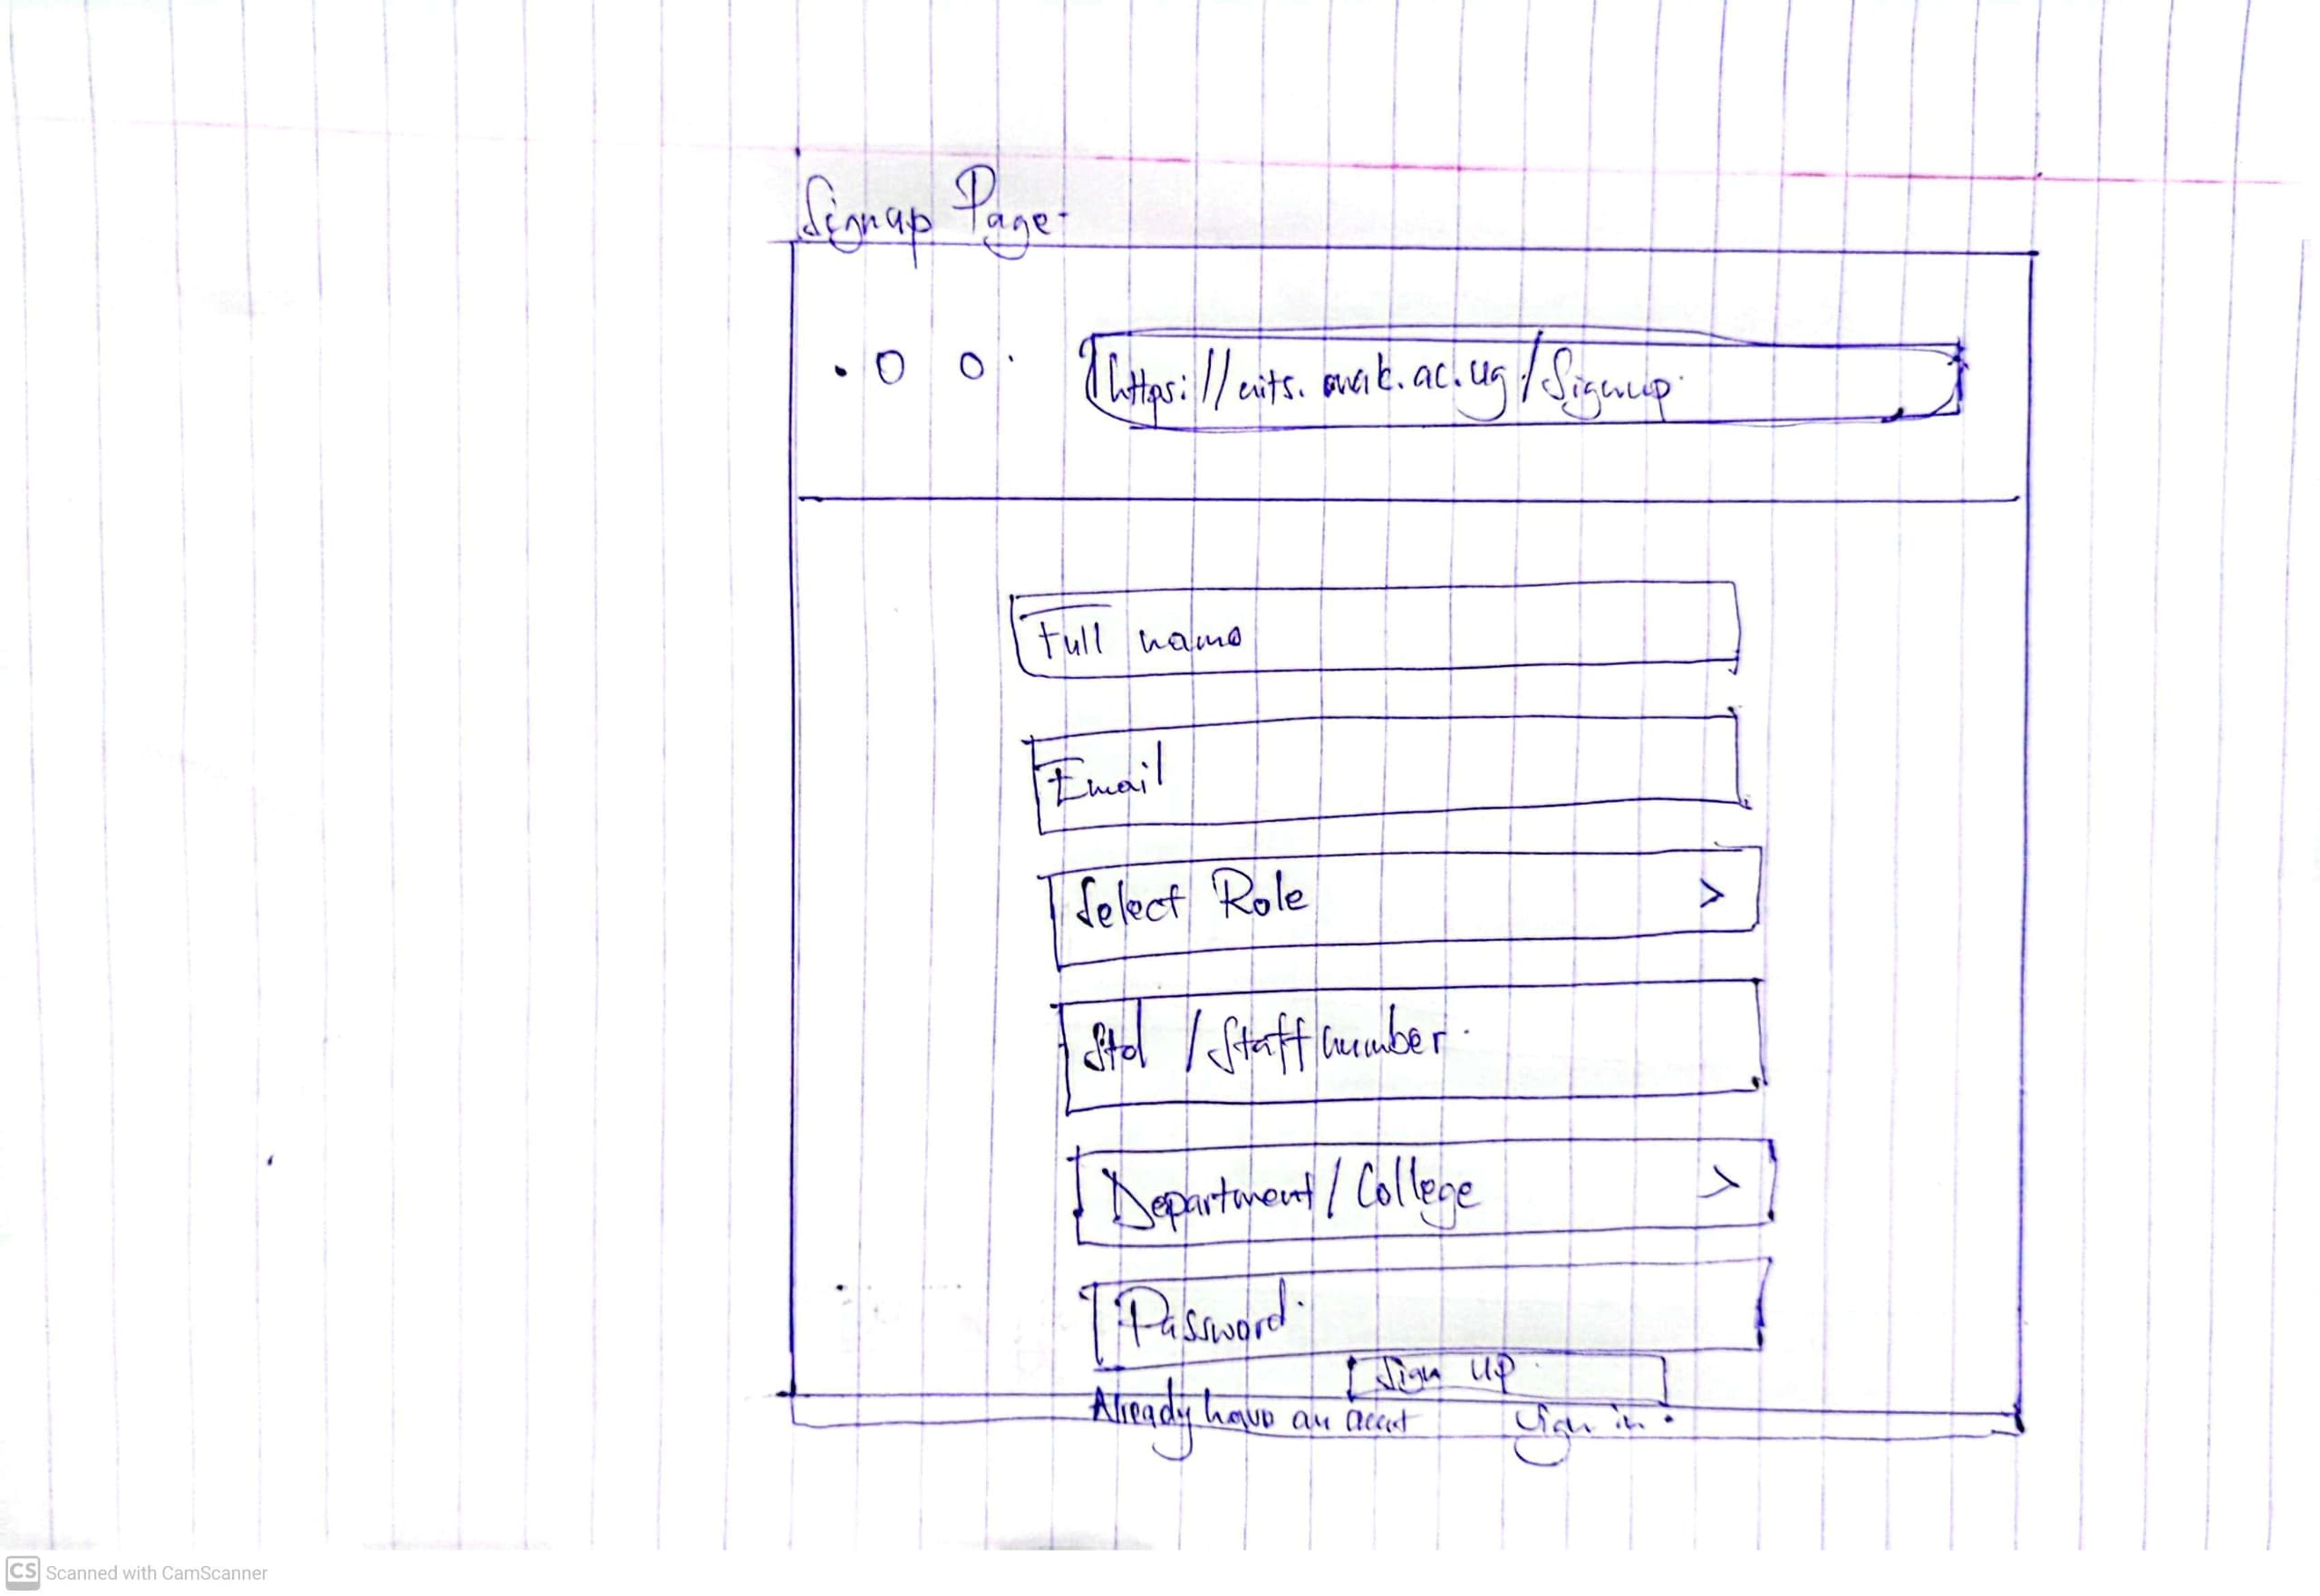 Signup Page
https://aits.mak.ac.ug/Signup
Full name
Email
Select Role >
Std / Staff number
Department / College >
Password
Sign UP
Already have an accnt Sign in
CS Scanned with CamScanner